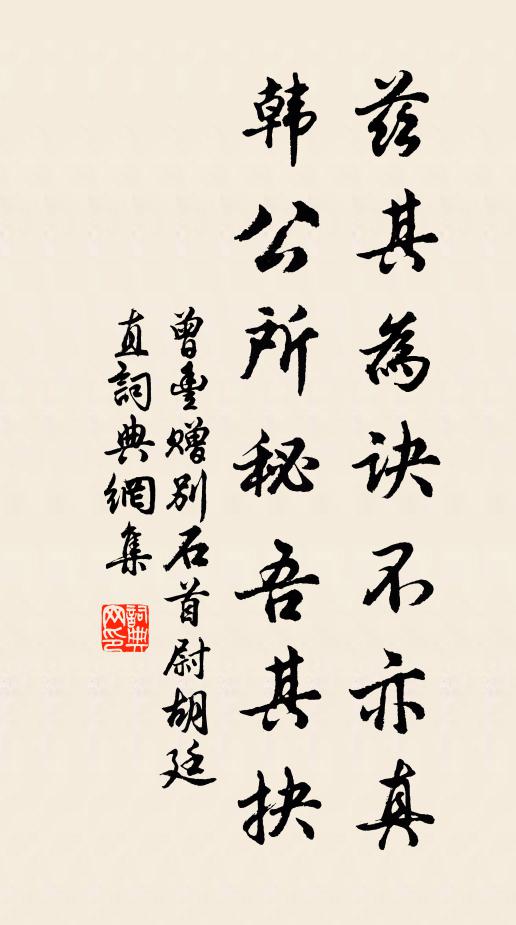 茲其為訣不亦真
韩公所秘吾其抉
曾豊赠别石首尉胡廷
直詞典網集
詞典
网印